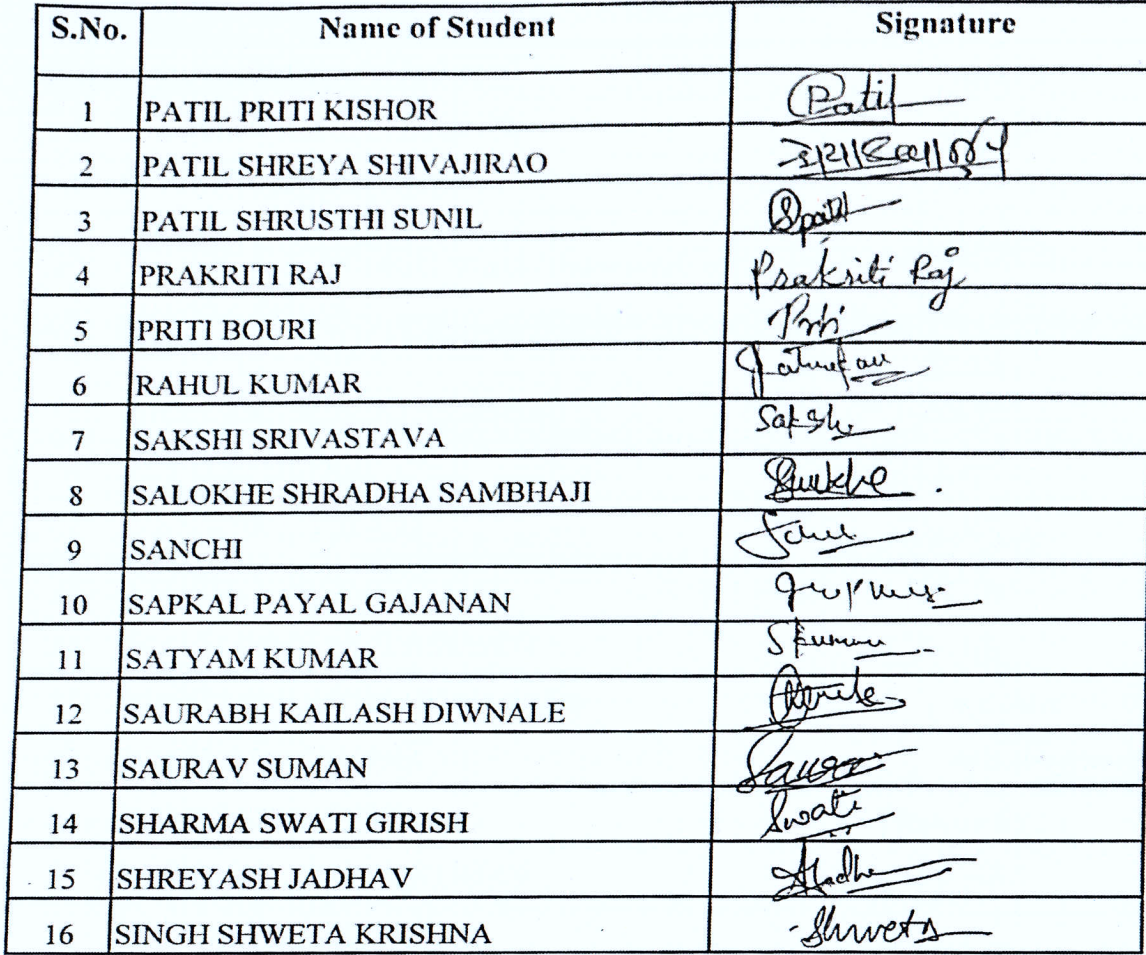 S.No. Name of Student Signature
1 PATIL PRITI KISHOR Patil
2 PATIL SHREYA SHIVAJIRAO
3 PATIL SHRUSTHI SUNIL Spatil
4 PRAKRITI RAJ Prakriti Raj
5 PRITI BOURI Priti
6 RAHUL KUMAR
7 SAKSHI SRIVASTAVA Sakshi
8 SALOKHE SHRADHA SAMBHAJI
9 SANCHI
10 SAPKAL PAYAL GAJANAN
11 SATYAM KUMAR Skumar
12 SAURABH KAILASH DIWNALE
13 SAURAV SUMAN Saurav
14 SHARMA SWATI GIRISH Swati
15 SHREYASH JADHAV
16 SINGH SHWETA KRISHNA Shweta